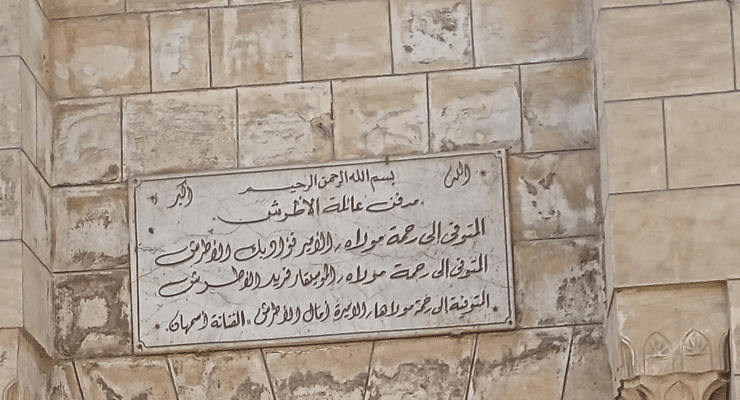 الله أكبر
بسم الله الرحمن الرحيم
مدفن عائلة الأطرش
المتوفى الى رحمة مولاه، الأمير فؤاد بك الأطرش
المتوفى الى رحمة مولاه، الموسيقار فريد الأطرش
المتوفية الى رحمة مولاها، الاميرة أمال الأطرش "الفنانة اسمهان"